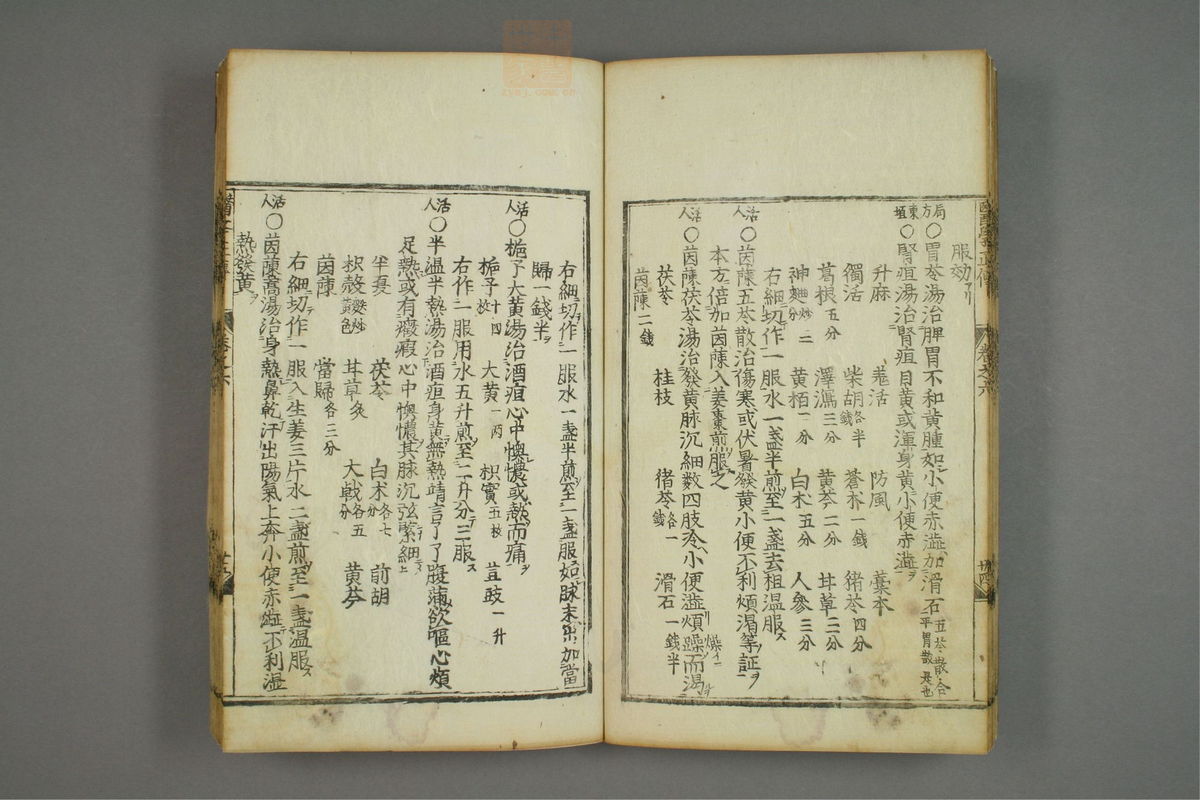 服効アリ
局方○胃苓湯治脾胃不和黄腫如小便赤澁加滑石五苓散合平胃散是也
東垣○腎疸湯治腎疸目黄或渾身黄小便赤澁
升麻 羗活 防風 藁本
獨活 柴胡各半錢 蒼朮一錢 猪苓四分
葛根五分 澤瀉三分 黄芩二分 甘草三分
神麯炒二分 黄栢一分 白朮五分 人參三分
右細切作一服水一盞半煎至一盞去粗温服
活人○茵蔯五苓散治傷寒或伏暑發黄小便不利煩渴等証
本方倍加茵蔯入姜棗煎服之
活人○茵蔯茯苓湯治發黄脉沉細數四肢冷小便澁煩躁而渴
茯苓 桂枝 猪苓各一錢 滑石一錢半
茵蔯二錢
卷之六
右細切作一服水一盞半煎至一盞服如脉未出加當
歸一錢半
活人○梔子大黄湯治酒疸心中懊憹或熱而痛
梔子十四枚 大黄一两 枳實五枚 荳豉一升
右作一服用水五升煎至二升分三服
活人○半温半熱湯治酒疸身黄無熱靖言了了腹滿欲嘔心煩
足熱或有癥瘕心中懊憹其脉沉弦緊細
半夏 茯苓 白朮各七分 前胡
枳殻麩炒黄色 甘草炙 大戟各五分 黄芩
茵蔯 當歸各三分
右細切作一服入生姜三片水二盞煎至一盞温服
活人○茵蔯蒿湯治身熱鼻乾汗出陽氣上奔小便赤澁不利湿
熱發黄